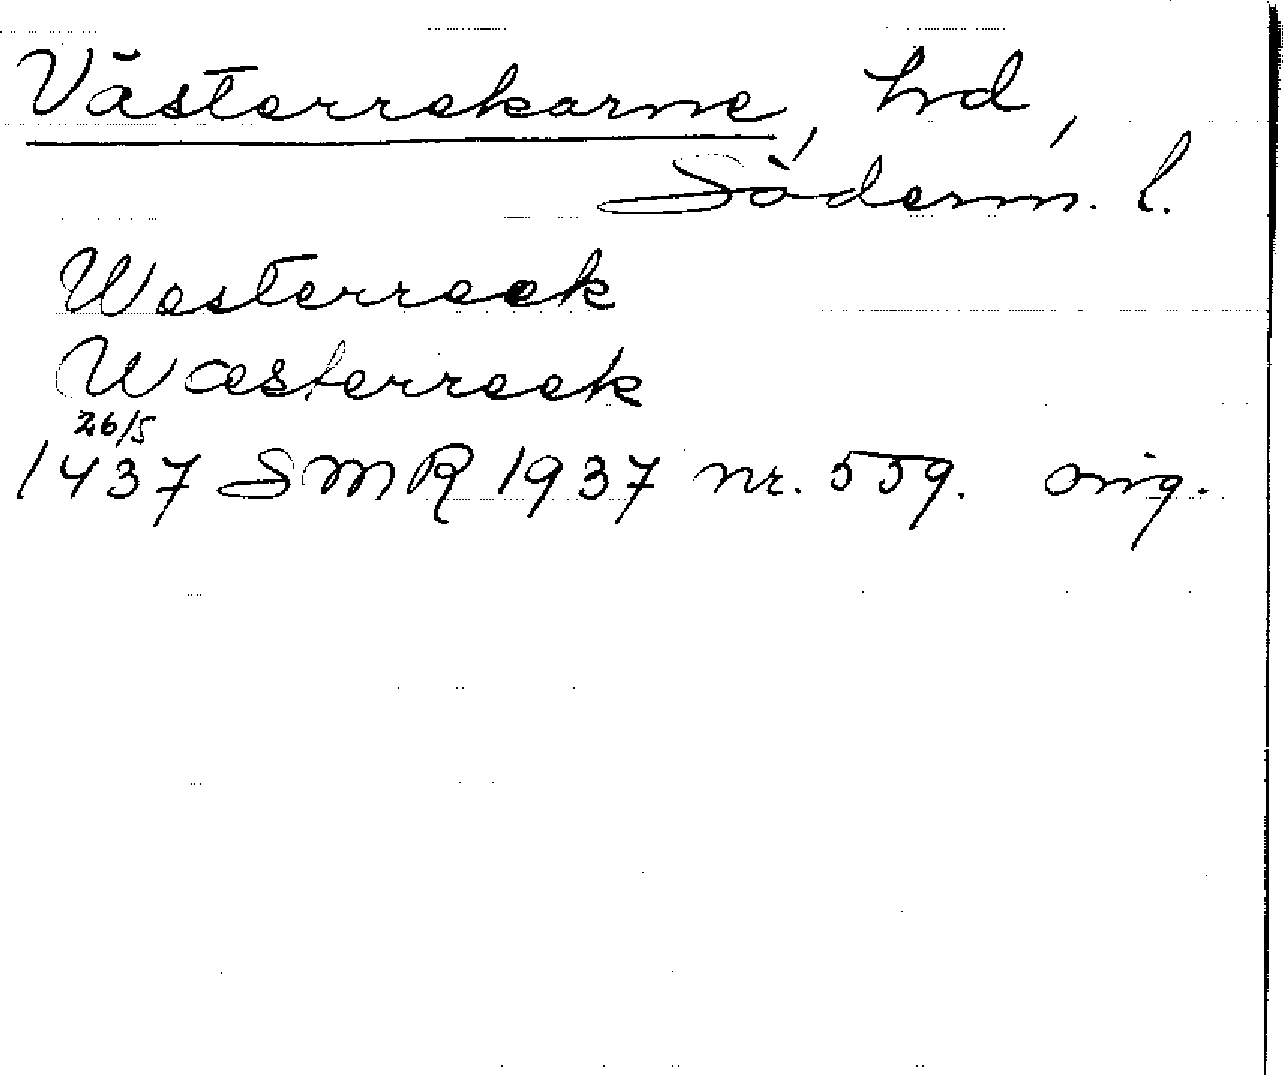 Västerrekarne, hd,
Söderm. l.
Westerreek
Wæsterreek
26/5
1437 SMR 1937 nr. 559. orig.